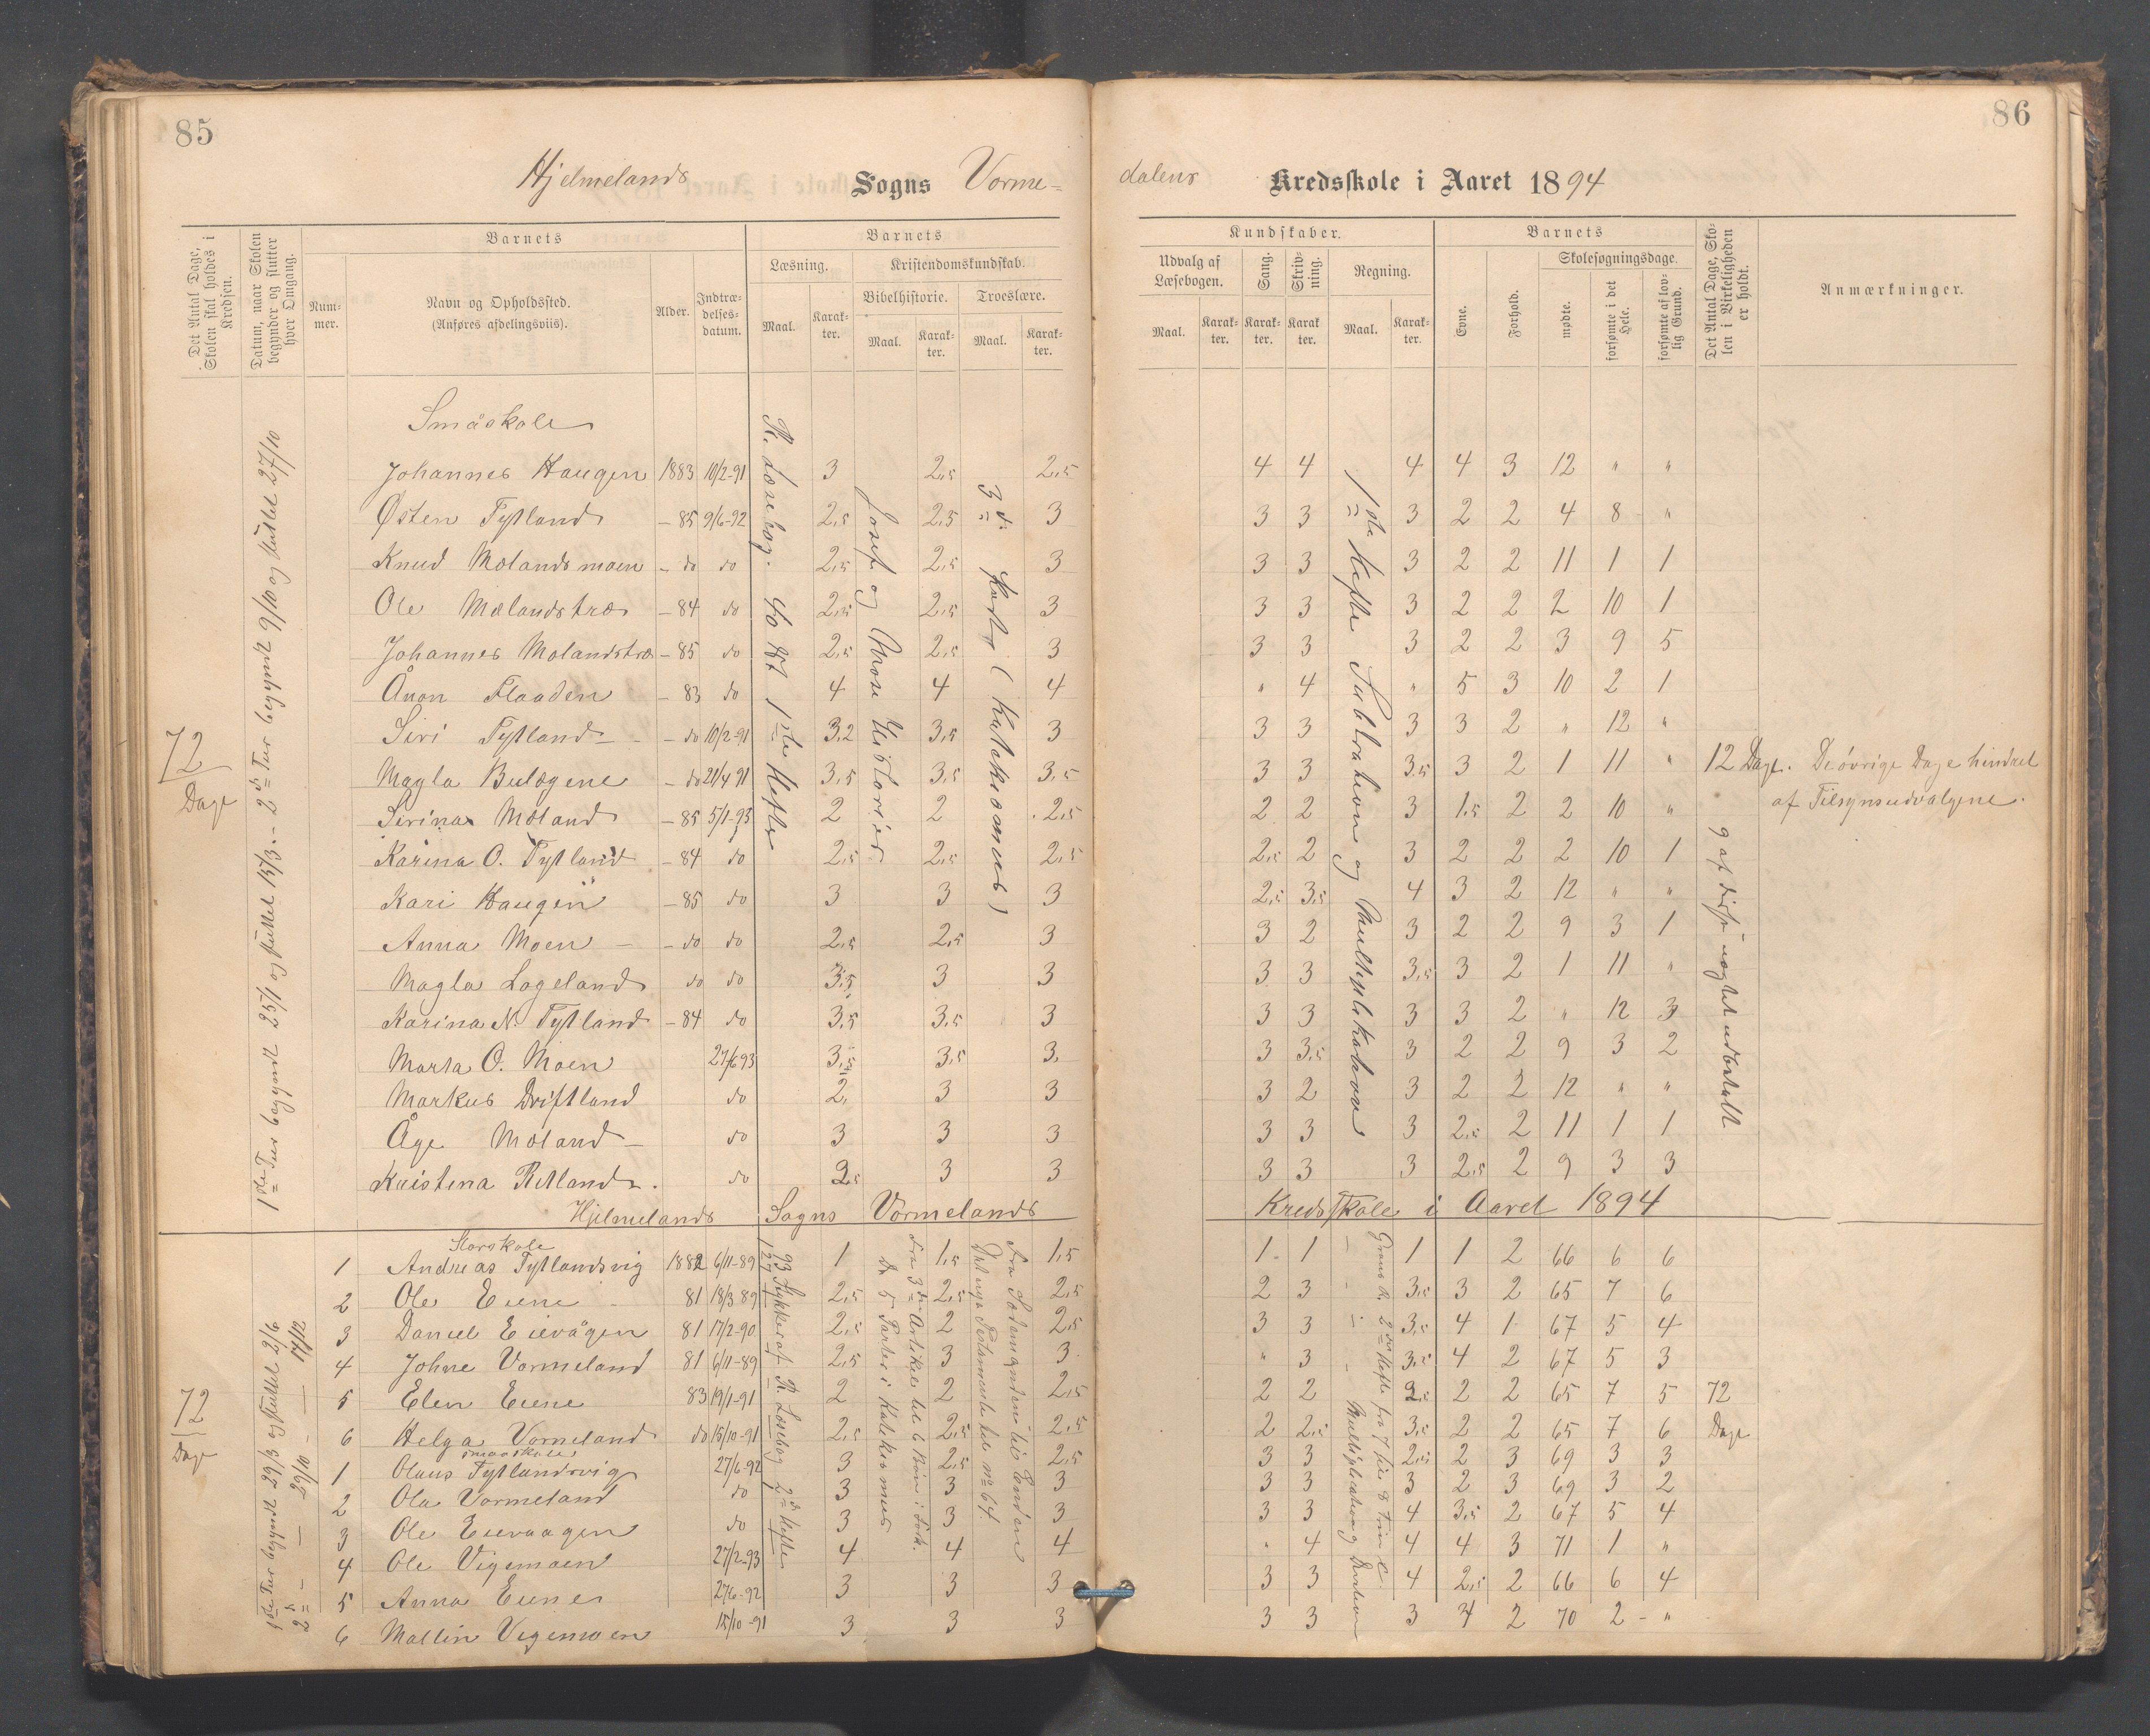 85
86
Hjelmelands Sogns Vorme-
dalens Kredsskole i Aaret 1894
Det Antal Dage, Skolen skal holdes i Kredsen.
Datum, naar Skolen begynder og slutter hver Omgang.
Barnets
Num-mer.
Navn og Opholdssted. (Anføres afdelingsviis).
Alder.
Indtræ-delses-datum.
Barnets
Læsning.
Kristendomskundskab.
Bibelhistorie.
Troeslære.
Maal.
Karak-ter.
Maal.
Karak-ter.
Maal.
Karak-ter.
Kundskaber.
Udvalg af Læsebogen.
Sang.
Skriv-ning.
Regning.
Maal.
Karak-ter.
Karak-ter.
Karak-ter.
Maal.
Karak-ter.
Barnets
Evne.
Forhold.
Skolesøgningsdage.
mødte.
forsømte i det Hele.
forsømte af lov-lig Grund.
Det Antal Dage, Sko-len i Virkeligheden er holdt.
Anmærkninger.
72 Dage
1ste Tur begyndt 25/1 og sluttet 15/3. - 2d Tur begyndt 9/10 og sluttet 27/10
R. Læsebog.
Josef og Mose Historier
1ste Hefte Subtraktion og Multiplikation
9 af disse
Småskole
Johannes Haugen 1883 10/2-91 3 2,5 2,5 4 4 4 4 3 12 " "
Østen Tytland - 85 9/6-92 2,5 2,5 3 3 3 3 2 2 4 8 "
Knud Mølandsmoen - do do 2,5 2,5 3 3 3 3 2 2 11 1 1
Ole Mølandstræ - 84 do 2,5 2,5 3 3 3 3 2 2 2 10 1
Johannes Mølandstræ - 85 do 2,5 2,5 3 3 3 3 2 2 3 9 5
Ånon Flaaden - 83 do 4 4 4 " 4 " 5 3 10 2 1
Siri Tytland - do 10/2-91 3,2 3,5 3 3 3 3 3 2 " 12 "
Magla Bulægene - do 21/4 91 3,5 3,5 3,5 3 3 3,5 3 2 1 11 " 12 Dage. De øvrige Dage hindret
af Tilsynsudvalgene.
Serina Møland - 85 5/1-93 2 2 2,5 2 2 3 1,5 2 2 10 "
Karina O. Tytland - 84 do 2,5 2,5 2,5 2,5 2 3 2 2 2 10 1
Kari Haugen - 85 do 3 3 3 2,5 3,5 4 3 2 12 " "
Anna Moen - do do 2,5 2,5 3 3 2 3 2 2 9 3 1
Magla Lageland do do 3,5 3 3 3 3 3,5 3 2 1 11 "
Karina N. Tytland - 84 do 3,5 3,5 3 3 3 3 3 2 " 12 3
Marta O. Moen 27/6 93 3,5 3,5 3. 3 3,5 3 2 2 9 3 2
Markus Driftland do 2, 3 3 3 2 3 2 2 12 " "
Åge Møland do 3 3 3 3 3 3 2,5 2 11 1 1
Kristina Ritland. do 2,5 3 3 3 3 3 2,5 2 9 3 3
Hjelmelands Sogns Vormelands Kredsskole i Aaret 1894
72 Dage
1ste Tur begyndt 29/3 og sluttet 2/6
2d - - 26/10 - - 17/12
R. Læsebog 2d Hefte
Storskole
1 Andreas Tytlandsvig 1882 6/11-89 1 1,5 1,5 1 1 1 1 2 66 6 6
2 Ole Eiene 81 18/3 89 2,5 2,5 2,5 2 3 3,5 3 2 65 7 6
3 Daniel Eievågen 81 17/2-90 2,5 2 2,5 3 3 3,5 4 1 67 5 4
4 Johne Vormeland 81 6/11-89 2,5 3 3 " 3 3,5 4 2 67 5 3
5 Elen Eiene 83 19/1-91 2 2 2,5 2 2 2,5 2 2 65 7 5 72
6 Helga Vormeland do 15/10-91 2,5 2,5 2,5 2 2,5 3,5 2 2 65 7 6 Dage
Smaaskole
1 Olaus Tytlandsvig 27/6-92 3 2,5 2,5 3 3 2,5 2 3 69 3 3
2 Ola Vormeland do 3 3 3 3 3 3 2 3 69 3 2
3 Ole Eievaagen do 3 3 3 3 3 4 3,5 2 67 5 4
4 Ole Vigemoen 27/2-93 4 4 4 " 4 4 4 3 71 1 "
5 Anna Eiene 27/6-92 3 3 3 3 3 4 2,5 2 66 6 4
6 Mallin Vigemoen 15/10-91 3 3 3 3 3 3 4 2 70 2 "